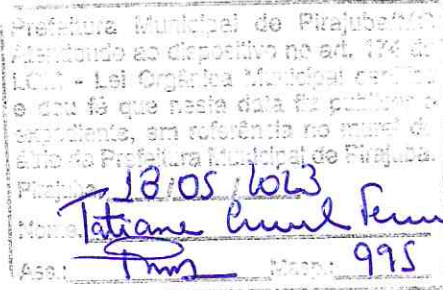 Prefeitura Municipal de Pirajuba/MG
Atendendo ao dispositivo no art. 174 da
LOM - Lei Orgânica Municipal certifico
e dou fé que nesta data fiz publicar o
expediente, em referência no mural do
da Prefeitura Municipal de Pirajuba.
Pirajuba 18/05/2023
Nome: Tatiane
Ass.: Masp.: 995